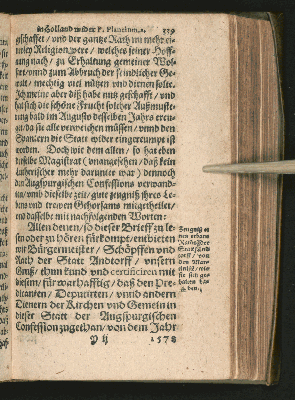 in Holland wider P. Plancium. 339
gschaffet / vnd der gantze Rath im mehr ei-
nerley Religion were / welches seiner Hoff-
nung nach / zu Erhaltung gemeiner Wol-
fart / vnnd zum Abbruch der feindlicher Ge-
walt / mechtig viel nützen vnd dienen solte.
Ich meine aber diß habe nutz geschafft / vnd
hat sich die schöne Frucht solcher Außmuste-
rung bald im Augusto desselben Jahrs ereu-
get / da sie alle verweichen müssen / vnnd den
Spaniern die Statt wider eingereumpt ist
worden. Doch wie dem allen / so hat eben
dieselbe Magistrat (vnangesehen / daß kein
Lutherischer mehr darunter war) dennoch
den Augspurgischen Confessions verwand-
ten / vmb dieselbe zeit / gute zeugniß ihres Le-
bens vnd trewen Gehorsams mitgetheilet /
vnd dasselbe mit nachfolgenden Worten:
Allen denen / so dieser Brieff zu le-
sen oder zu hören fürkompt / entbieten
wir Bürgemeister / Schöpffen vnd
Rath der Statt Andorff / vnsern
Gruß / thun kund vnd certificiren mit
diesem / für warhafftig / daß den Pre-
dicanten / Deputirten / vnnd andern
Dienern der Kirchen vnd Gemein in
dieser Statt der Augspurgischen
Confession zugethan / von dem Jahr
Y ij 1578
Zeugniß ei-
den.